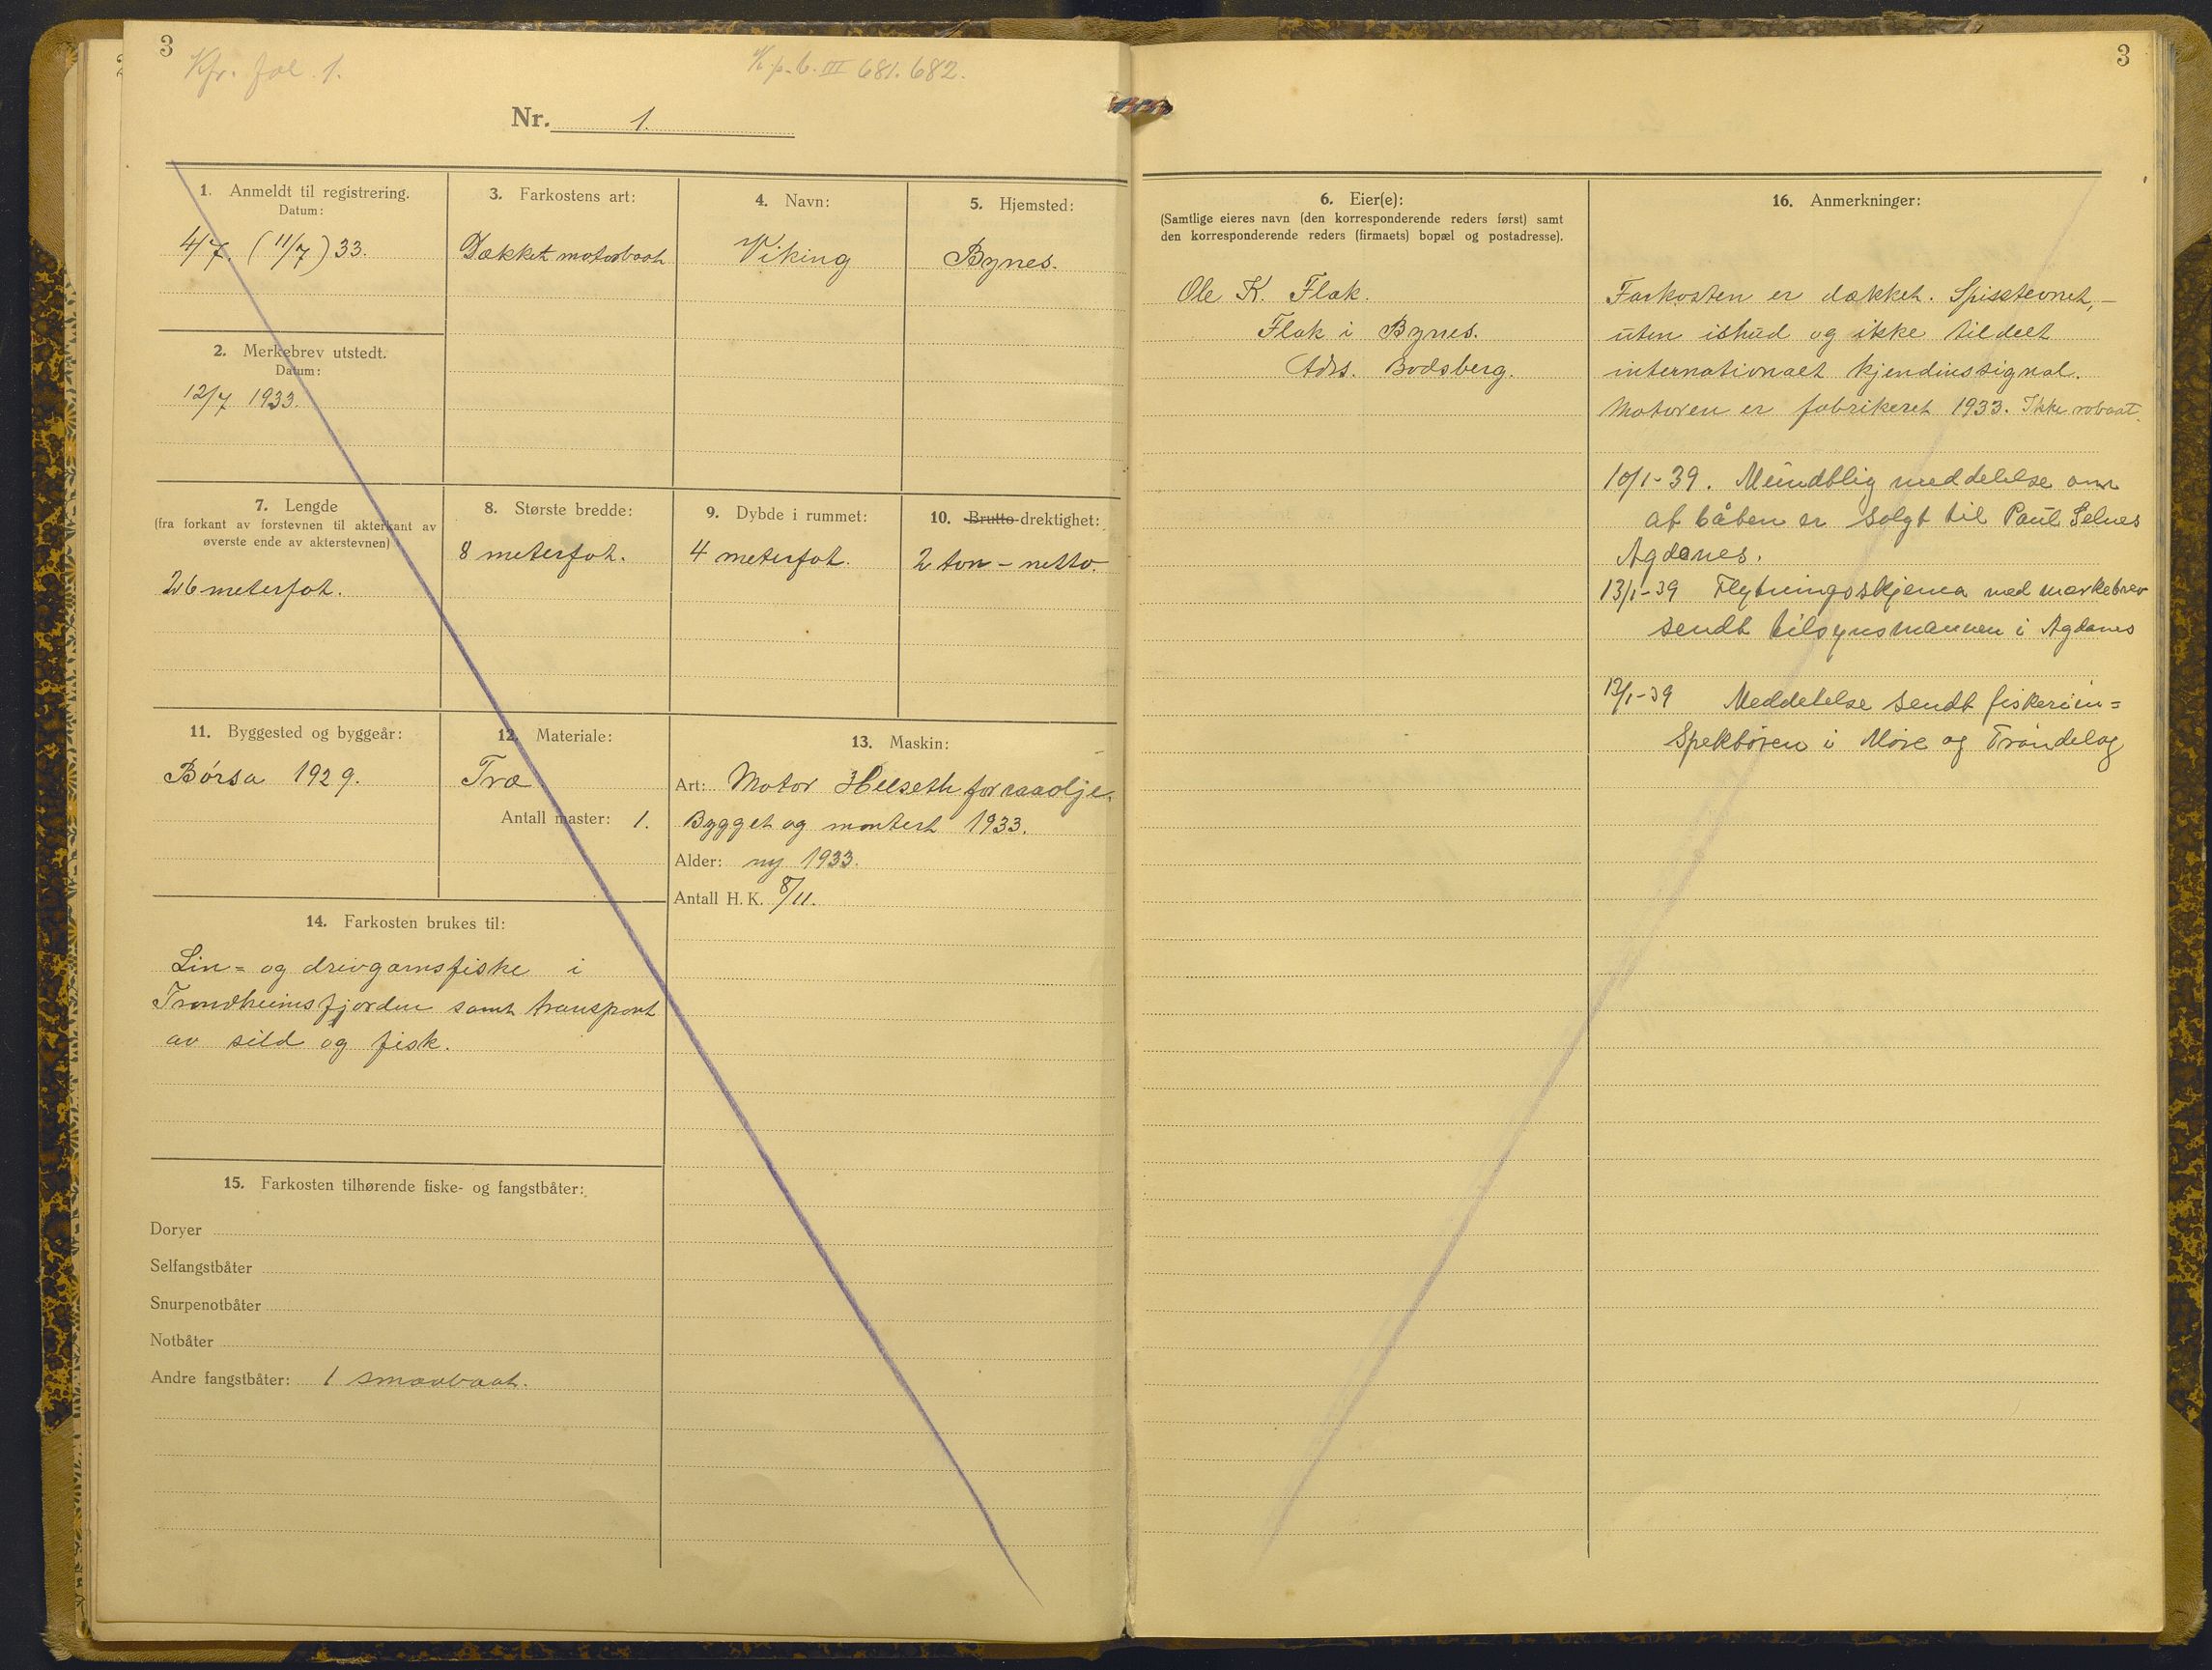 3
Kfr. fol. 1.
K.p.b. III 681. 682.
Nr. 1.
1. Anmeldt til registrering.
Datum:
4/7. (11/7) 33.
2. Merkebrev utstedt.
Datum:
12/7 1933.
3. Farkostens art:
Dækket motorbaat
4. Navn:
Viking
5. Hjemsted:
Bynes.
7. Lengde
(fra forkant av forstevnen til akterkant av
øverste ende av akterstevnen)
26 meterfot.
8. Største bredde:
8 meterfot.
9. Dybde i rummet:
4 meterfot.
10. Brutto drektighet:
2 ton – netto.
11. Byggested og byggeår:
Børsa 1929.
12. Materiale:
Træ
Antall master: 1.
13. Maskin:
Art: Motor Heeseth for raaolje.
Bygget og montert 1933.
Alder: ny 1933.
Antall H. K. 8/11.
14. Farkosten brukes til:
Lin= og drivgarnsfiske i
Trondheimsfjorden samt transport
av sild og fisk.
15. Farkosten tilhørende fiske- og fangstbåter:
Doryer
Selfangstbåter
Snurpenotbåter
Notbåter
Andre fangstbåter: 1 smaabaat.
3
6. Eier(e):
(Samtlige eieres navn (den korresponderende reders først) samt
den korresponderende reders (firmaets) bopæl og postadresse).
Ole K. Flak.
Flak i Bynes.
Adrs. Bodsberg.
16. Anmerkninger:
Farkosten er dækket. Spisstevnet, –
uten ishud og ikke tildelt
internationalt kjendingssignal.
Motoren er fabrikeret 1933. Ikke robaat.
10/1-39. Mundtlig meddelelse om
at båten er solgt til Paul Selnes
Agdenes.
13/1-39 Flytningsskjema med merkebrev
sendt tilsynsmannen i Agdenes
13/1-39 Meddelelse sendt fiskeriin=
spektøren i Møre og Trøndelag